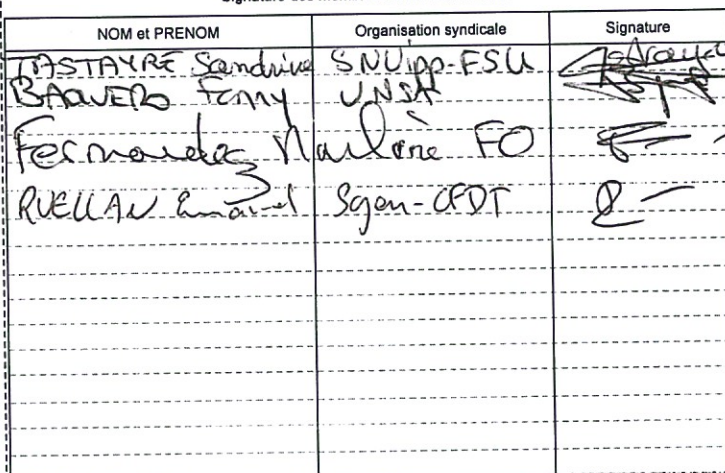 NOM et PRENOM Organisation syndicale Signature
TASTAYRE Sandrine SNUipp-FSU
BAQUERO Fanny UNSA
Fernandez Marlène FO
RUELLAN Emmanuel Sgen-CFDT